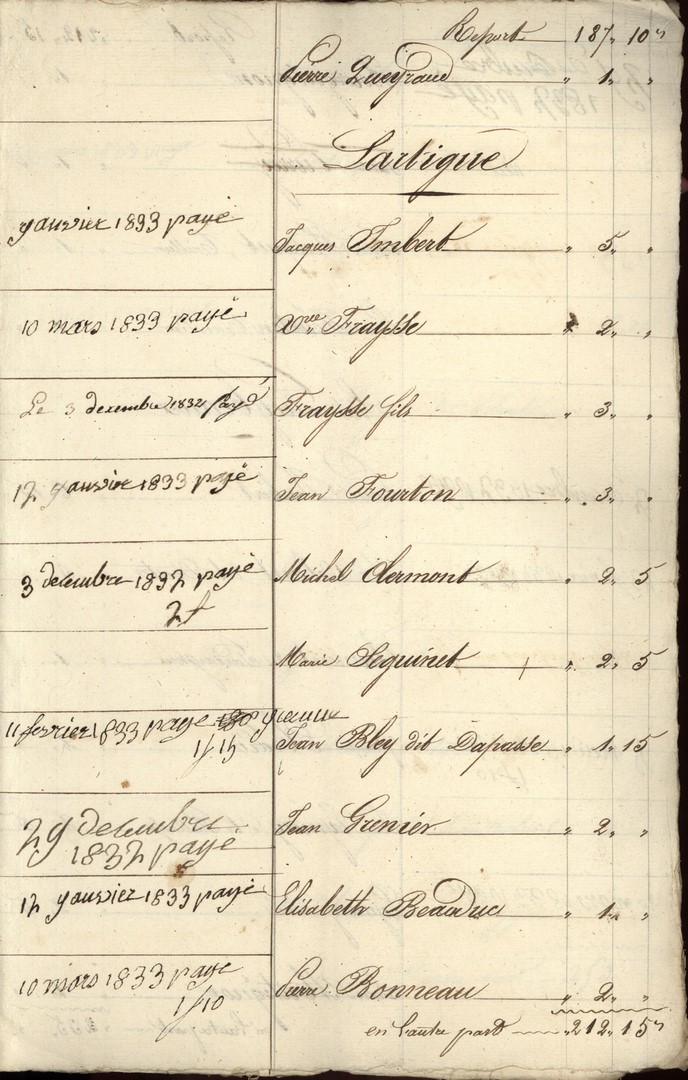 Report 187,, 10"
Pierre Queyraud ,, 1,, ,,
Lartigue
janvier 1833 payé Jacques Imbert ,, 5,, ,,
10 mars 1833 payé Vve Fraysse ,, 2,, ,,
Le 3 decembre 1832 payé Fraysse fils ,, 3,, ,,
12 janvier 1833 payé Jean Fourton ,, 3,, ,,
3 decembre 1832 payé Michel Clermont ,, 2,, 5
2f
Marie Seguinet ,, 2,, 5
11 fevrier 1833 paye
1f 15 Jean Bley dit Dapasse ,, 1,, 15
29 decembre
1832 payé Jean Grenier ,, 2,, ,,
12 janvier 1833 payé Elisabeth Beauduc ,, 1,, ,,
10 mars 1833 paye
1f10 Pierre Bonneau ,, 2,, ,,
en l'autre part ,, 212,, 15"